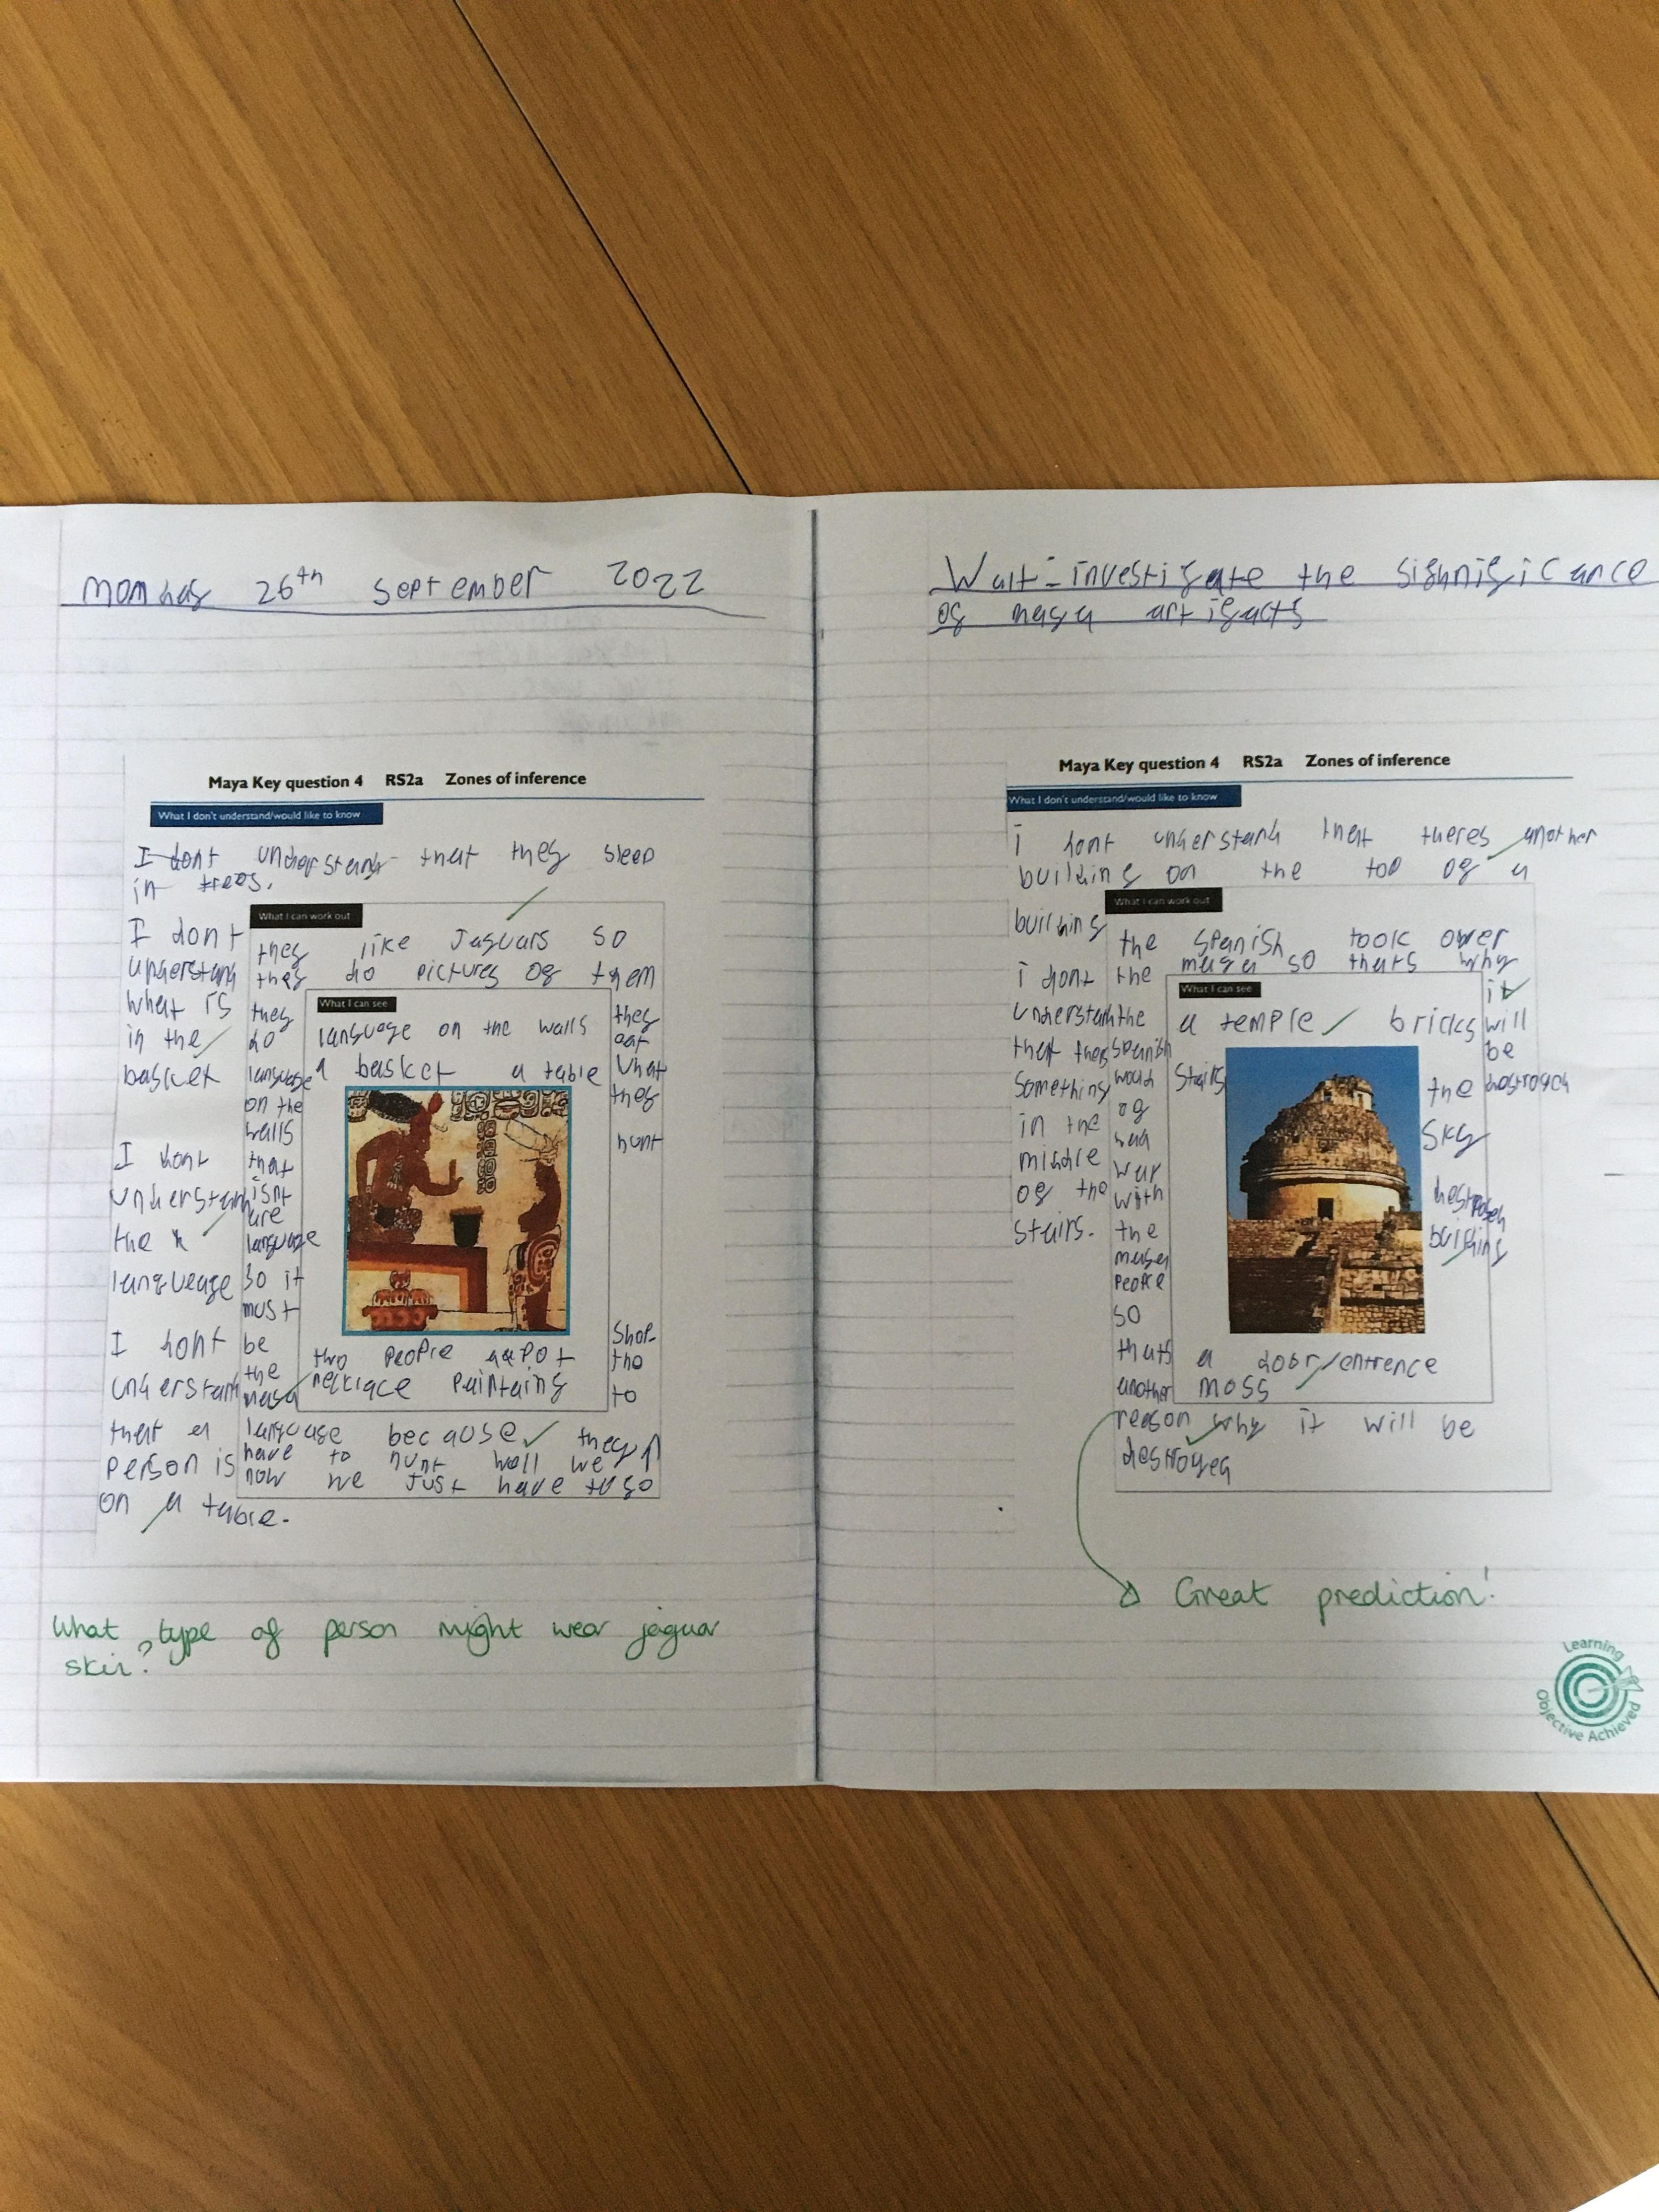 monday 26th September 2022
Maya Key question 4 RS2a Zones of inference
What I don't understand/would like to know
I dont understand that they sleep
in trees.
I dont
understand
what is
in the
basket
I dont
understand
the
language
I dont
understand
that a
person is
on a table.
What I can work out
they like Jaguars so
they do pictures of them
they
do
language
on the
walls
that
isnt
are
language
so it
must
be
the
maya
language because they
have to hunt well we
now we just have to go
to
the
shop
they
eat
what
they
hunt
What I can see
language on the walls
a basket a table
two people a pot
necklace paintaing
What type of person might wear jaguar
skin?
Walt - investigate the signnificance
of maya artifacts
Maya Key question 4 RS2a Zones of inference
What I don't understand/would like to know
i dont understand that theres another
building on the top of a
building
i dont
understand
that
something
in the
middle
of the
stairs.
What I can work out
the Spanish took over
the maya so thats why
it
will
be
destroyed
the
Spanish
would
of
had
war
with
the
mayan
people
so
thats
another
reason why it will be
destroyed
What I can see
a temple bricks
Stairs
the
sky
destroyed
building
a door/entrence
moss
Great prediction!
Learning
Objective Achieved